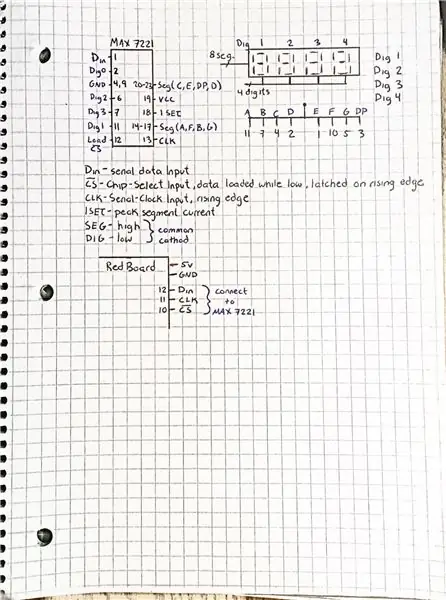 MAX 7221
Din 1
Dig0 2
GND 4,9 20-23 Seg(C, E, DP, D)
Dig2 6 19 VCC
Dig3 7 18 ISET
Dig1 11 14-17 Seg(A, F, B, G)
Load 12 13 CLK
CS
Dig 1 2 3 4
8 seg.
4 digits
Dig 1
Dig 2
Dig 3
Dig 4
A B C D E F G DP
11 7 4 2 1 10 5 3
Din - serial data Input
CS - Chip-Select Input, data loaded while low, latched on rising edge
CLK - Serial-Clock Input, rising edge
ISET - peak segment current
SEG - high } common
DIG - low } cathod
Red Board 5V
GND
12 Din } connect
11 CLK } to
10 CS } MAX 7221